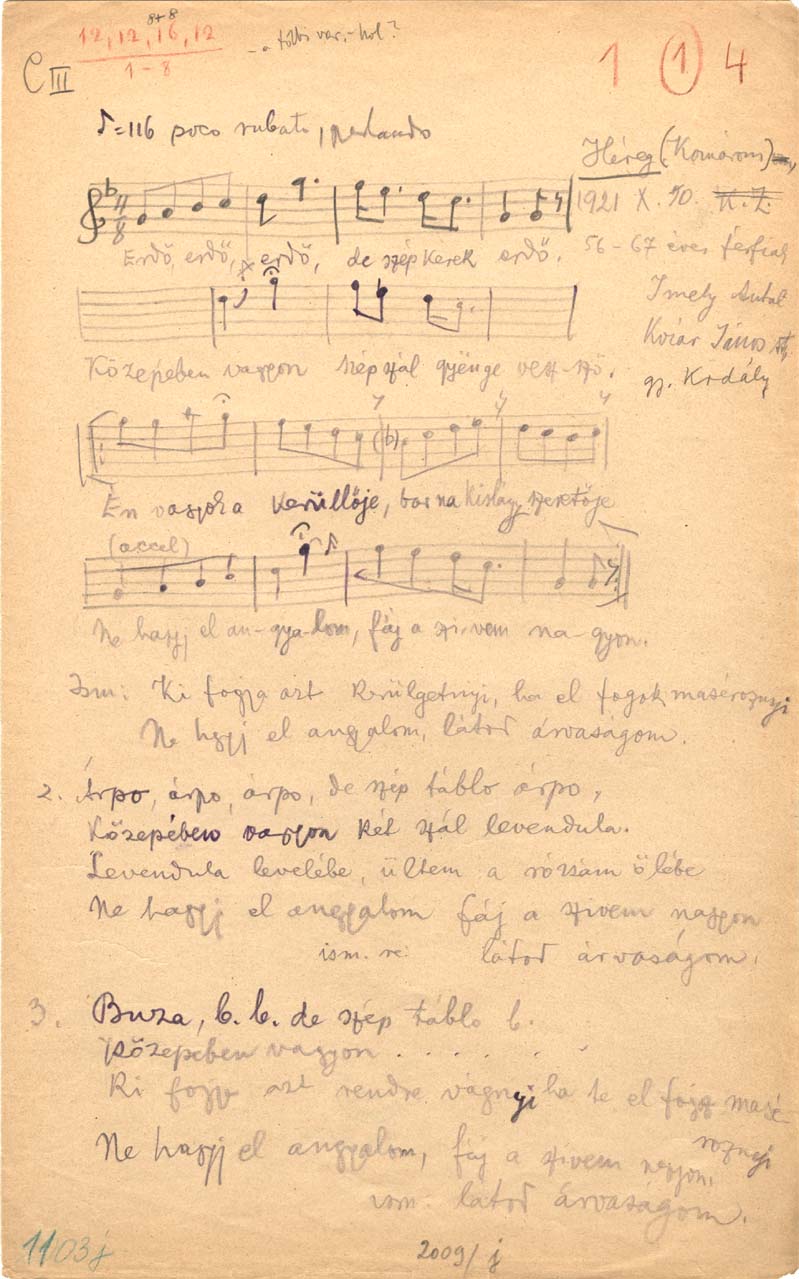 8+8
12, 12, 16, 12
1-8
- a többi var.- hol?
C III
1 (1) 4
♪=116 poco rubato, parlando
Héreg (Komárom)
1921 X. K. Z.
56-67 éves férfiak
Imely Antal
János
gy. Kodály
4/8
Erdő, erdő, erdő, de szép kerek erdő.
Közepében vagyon szép szál gyenge vesz-sző.
Én vagyok a kerüllője, barna kislány szeretője
(accel)
Ne hagyj el an-gya-lom, fáj a szi-vem na-gyon.
Ism: Ki fogja azt kerülgetnyi, ha el fogok maséroznyi
Ne hgyj el angyalom, látod árvaságom.
2. Árpo, árpo, árpo, de szép táblo árpo,
Közepében vagyon két szál levendula.
Levendula levelébe, ültem a rózsám ölébe
Ne hagyj el angyalom fáj a szivem nagyon
ism. re: látod árvaságom.
3. Buza, b. b. de szép táblo b.
Közepeben vagyon . . . . . .
Ki fogja azt rendre vágnyi ha te el fogsz masé
roznyi
Ne hagyj el angyalom, fáj a szivem nagyon.
ism. látod árvaságom.
1103j
2009/j